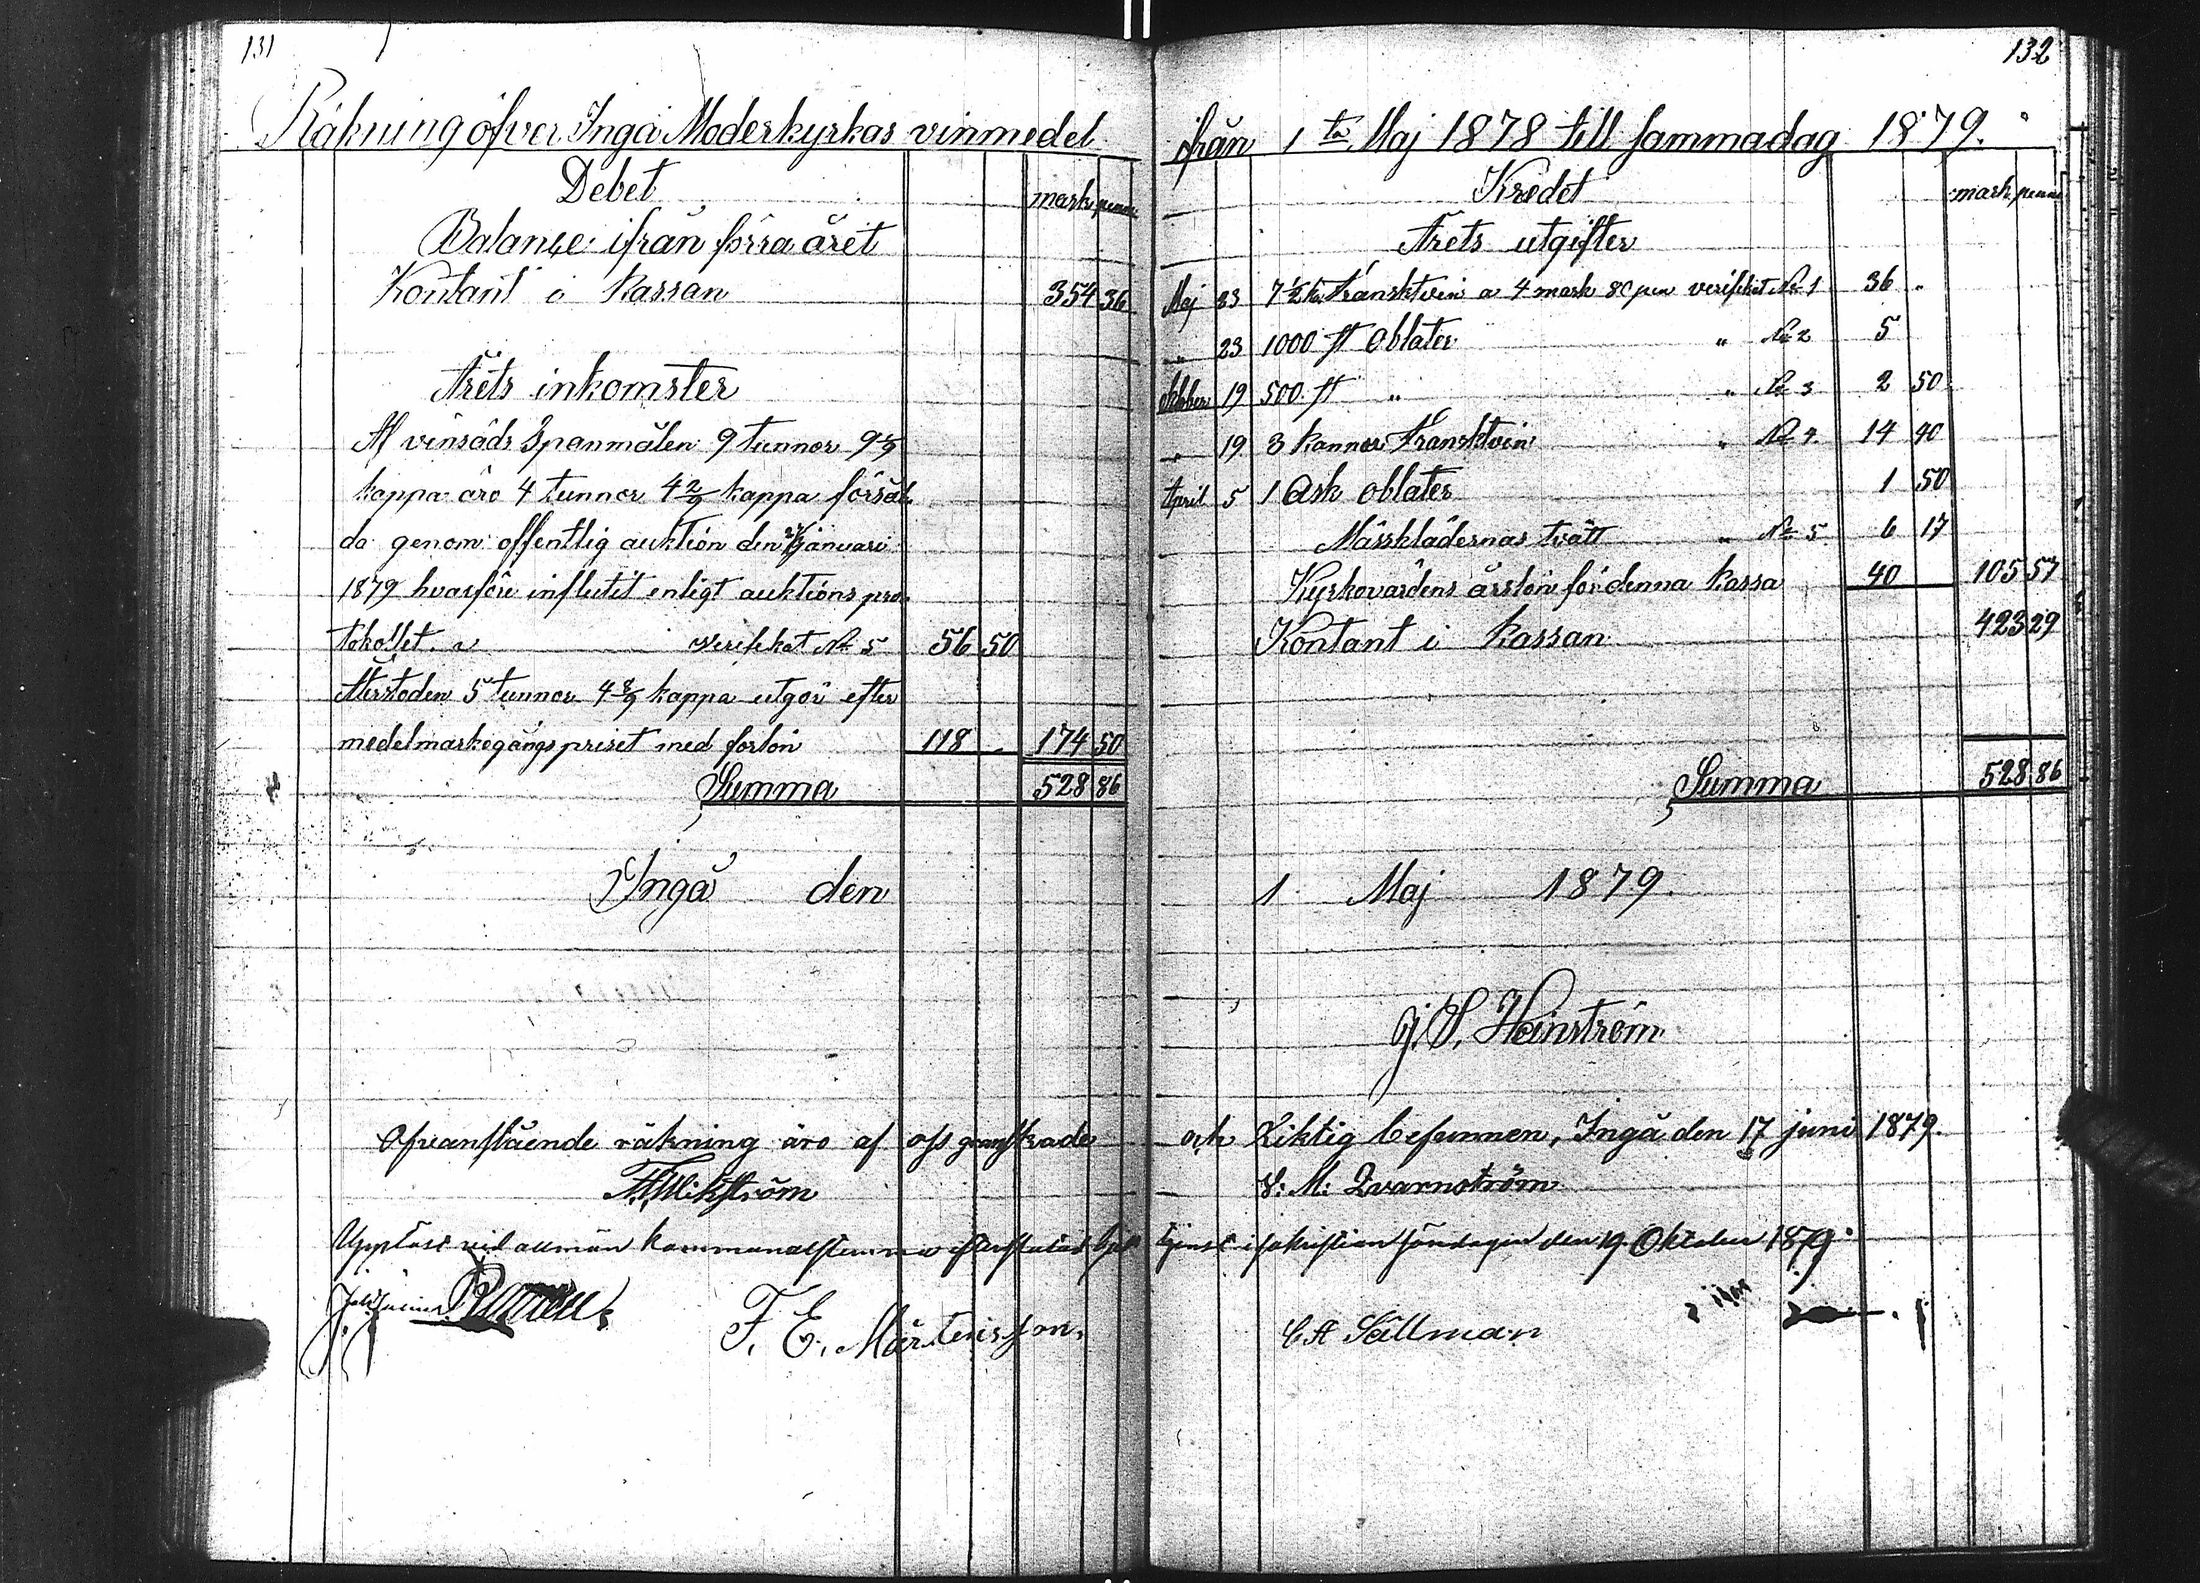 131
Räkning öfver Ingå Moderkyrkas vinmedel
Debet mark penni
Balance ifrån förra året
Kontant i Kassan 354 36
Årets inkomster
Af vinsäds Spanmålen 9 tunnor 9 1/9
kappa äro 4 tunnor 4 2/9 kappa försål-
da genom offentlig auktion den januari
1879 hvarföre influtit enligt auktions pro-
tokollet a verifikat No 5 56 50
Återstoden 5 tunnor 4 8/9 kappa utgör efter
medelmarkegångspriset med forlön 118 . 174 50
Summa 528 86
Ingå den
Ofvanstående räkning äro af oss granskade
F. Wikström
Uppläst vid allmän kommunalstemma efter slutad Guds
F. E. Mårtensson.
132
ifrån 1 ta Maj 1878 till samma dag 1879.
Kredet mark penni
Årets utgifter
Maj 23 7 1/2 ka. Fransktvin a 4 mark 80 pen verifikat No 1 36 "
" 23 1000 st Oblater " No 2 5
Oktober 19 500 st " " No 3 2 50
" 19 3 kannor Fransktvin " No 4 14 40
April 5 1 Ask oblater 1 50
Mässklädernas tvätt " No 5 6 17
Kyrkovärdens årslön för denna kassa 40 105 57
Kontant i Kassan 423 29
Summa 528 86
1 Maj 1879.
G. H. Heinström
och Riktig befunnen, Ingå den 17 juni 1879.
V: M: Qvarnström
tjenst i sakristian söndagen den 19 Oktober 1879.
C A Sällman